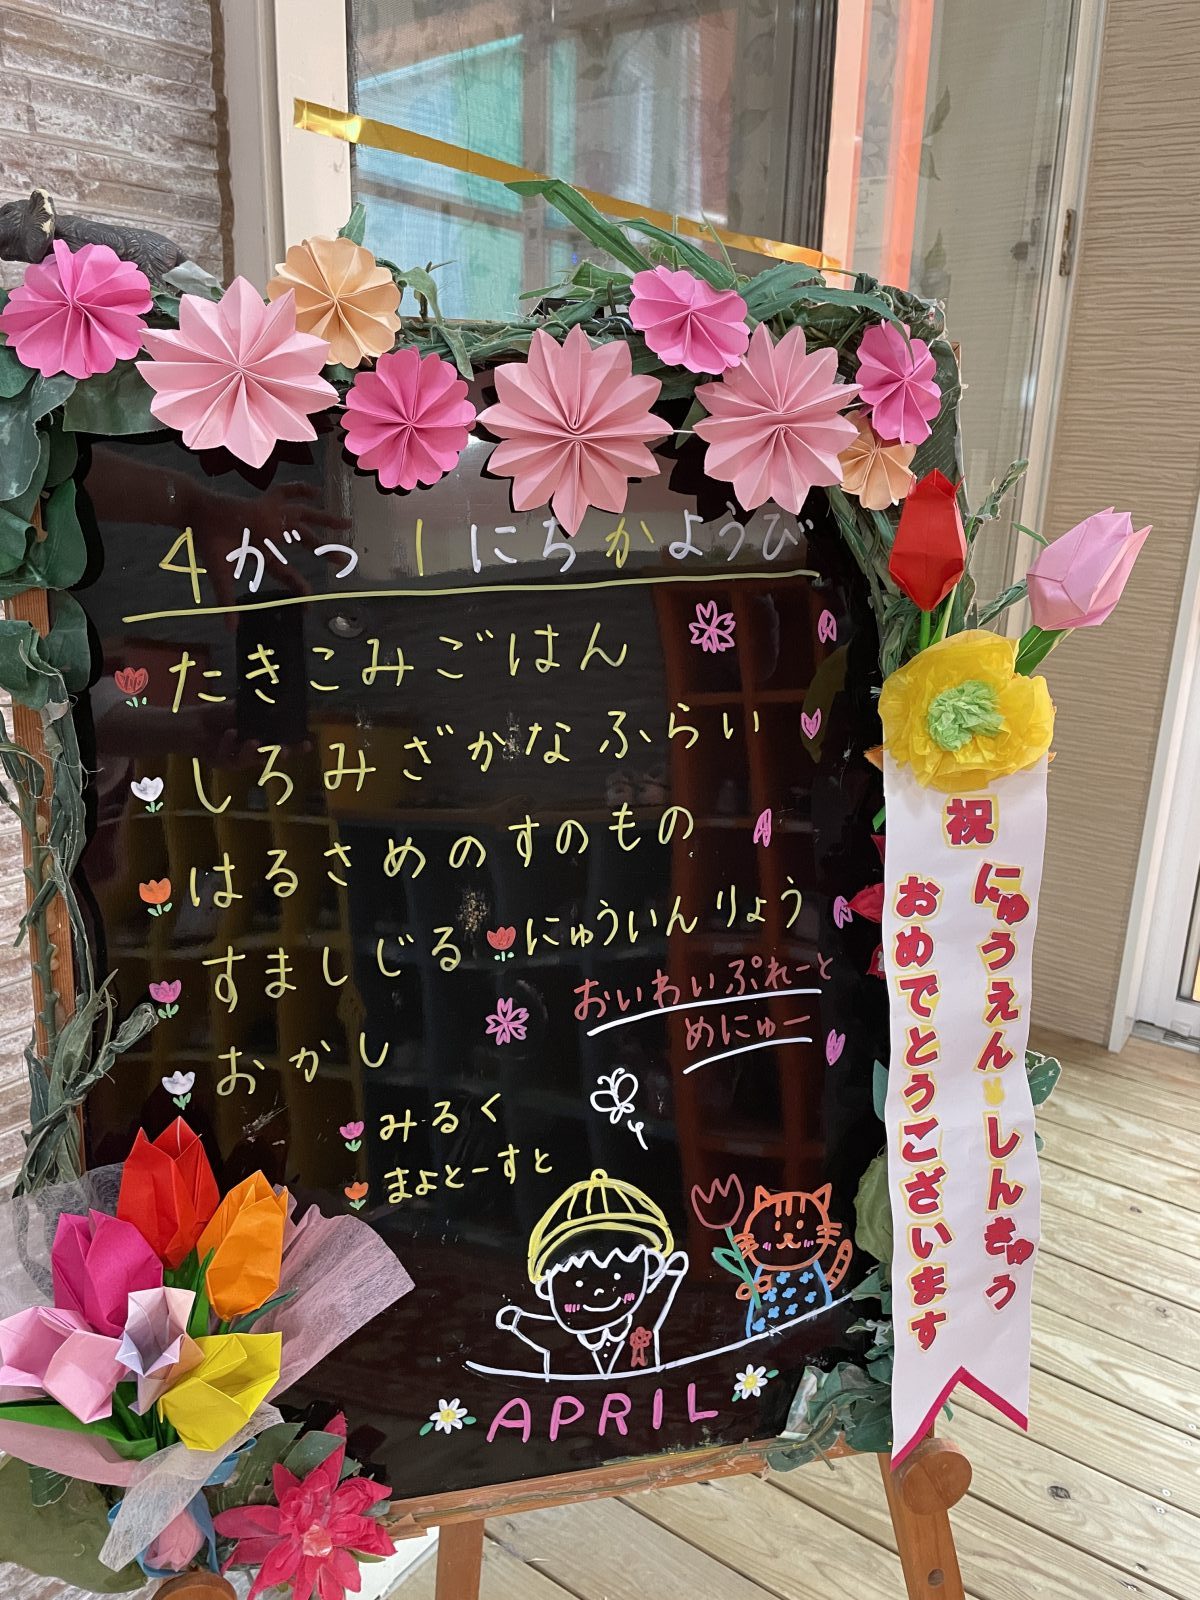 4がつ 1にち かようび
たきこみごはん
しろみざかなふらい
はるさめのすのもの
すましじる にゅういんりょう
おかし
みるく
まよとーすと
おいわいぷれーと
めにゅー
APRIL
祝
にゅうえん しんきゅう
おめでとうございます